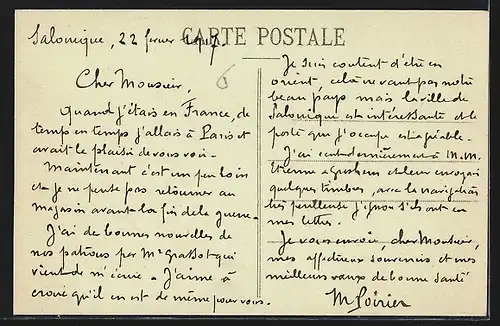 CARTE POSTALE
Salonique, 22 février 1917.
6
Cher Monsieur,
Quand j'étais en France, de
temps en temps j'allais à Paris et
avait le plaisir de vous voir.
Maintenant c'est un peu loin
et je ne pense pas retourner au
magasin avant la fin de la guerre.
J'ai de bonnes nouvelles de
nos patrons par Mr Grassot qui
vient de m'écrire. J'aime à
croire qu'il en est de même pour vous.
Je suis content d'être en
orient, cela ne vaut pas notre
beau pays mais la ville de
Salonique est intéressante et le
poste que j'occupe est agréable.
J'ai écrit dernièrement à M.M.
Etienne et leur envoyai
quelques timbres, avec la navigation
très périlleuse j'ignore s'ils ont eu
mes lettres.
Je vous envoie, cher Monsieur,
mes affectueux souvenirs et mes
meilleurs vœux de bonne santé
M Poirier